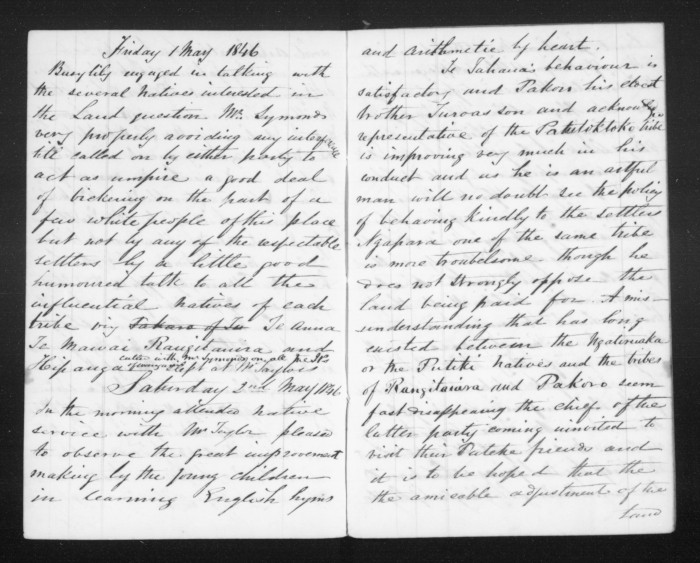 Friday 1 May 1846
Busytily engaged in talking with
the several Natives interested in
the Land question Mr. Symonds
very properly avoiding any interference
till called on by either party to
act as umpire a good deal
of bickering on the part of a
few white people of this place
but not by any of the respectable
settlers by a little good
humoured talk to all the
influential natives of each
tribe viz Te Anna
Te Mawai Rangitauira and
Hipango called with Mr Symonds on all the
slept at Mr Taylors
Saturday 2nd May 1846
In the morning attended native
service with Mr Taylor pleased
to observe the great improvement
making by the young children
in learning English hyms
and arithmetic by heart.
Te Tahana's behaviour is
satisfactory and Pakoro his eldest
brother Turoas son and acknowledged
representative of the Patutokotoko tribe
is improving very much in his
conduct and as he is an artful
man will no doubt see the policy
of behaving kindly to the settlers
Ngapara one of the same tribe
is more troubelsome though he
does not strongly oppose the
land being paid for. A mis-
understanding that has long
existed between the
or the Putiki Natives and the tribes
of Rangitauira and Pakoro seem
fast disappearing the chiefs of the
latter party coming uninvited to
visit their friends and
it is to be hoped that the
the amicable adjustment of the